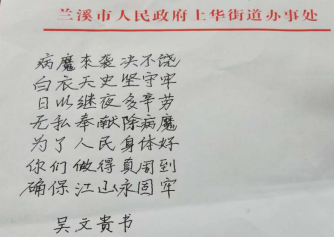 兰溪市人民政府上华街道办事处
病魔来袭决不饶
白衣天史坚守牢
日以继夜多辛劳
无私奉献除病魔
为了人民身体好
你们做得真周到
确保江山永固牢
吴文贵书